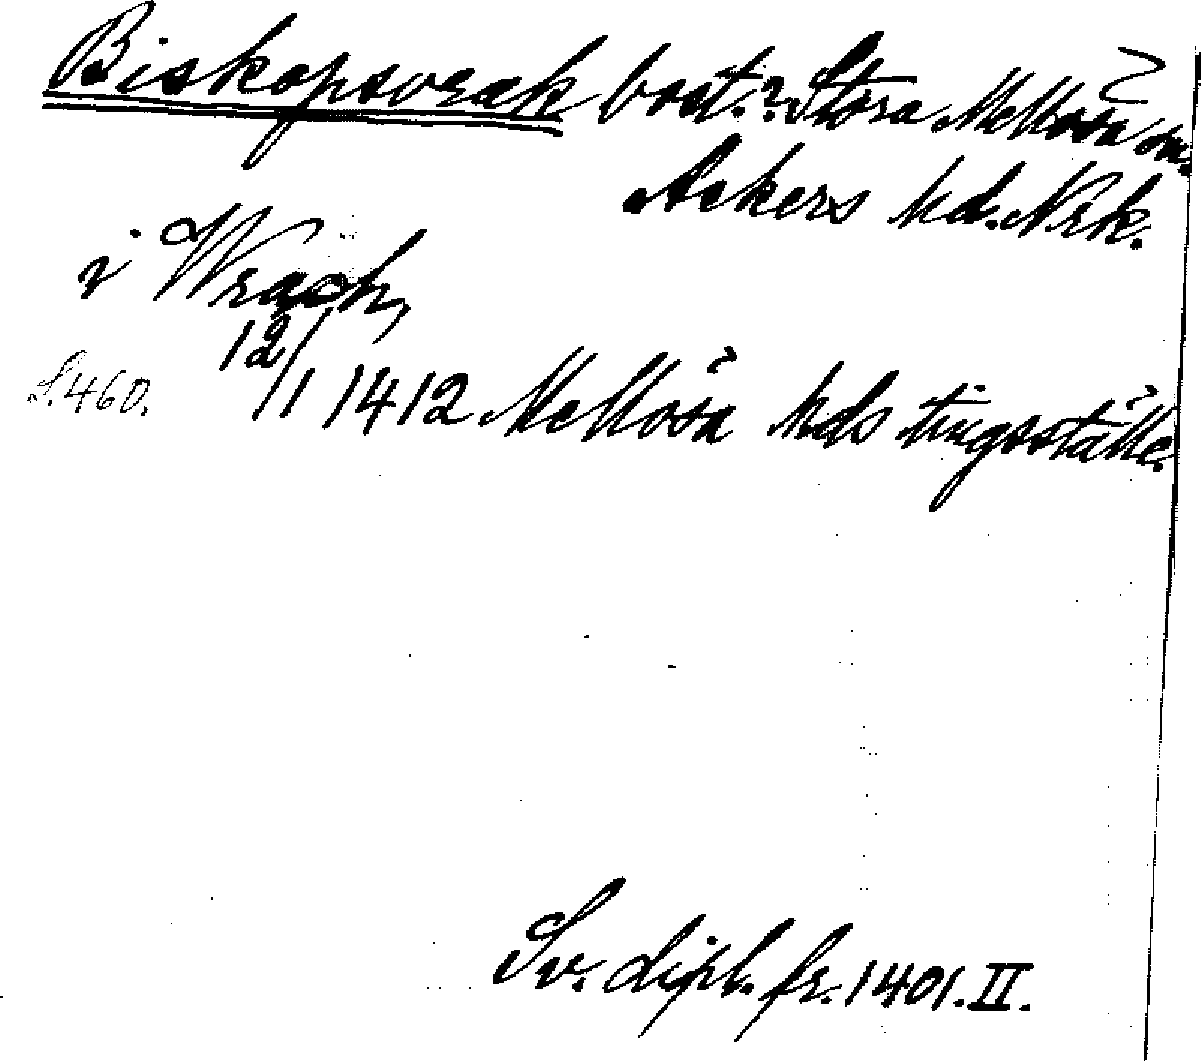 Biskopsvrak bost.? Stora Mellösa sn.
Askers hd. Nrk.
i Wraak,
S. 460. 12/1 1412 Mellösa hds tingsställe.
Sv. dipl. fr. 1401. II.